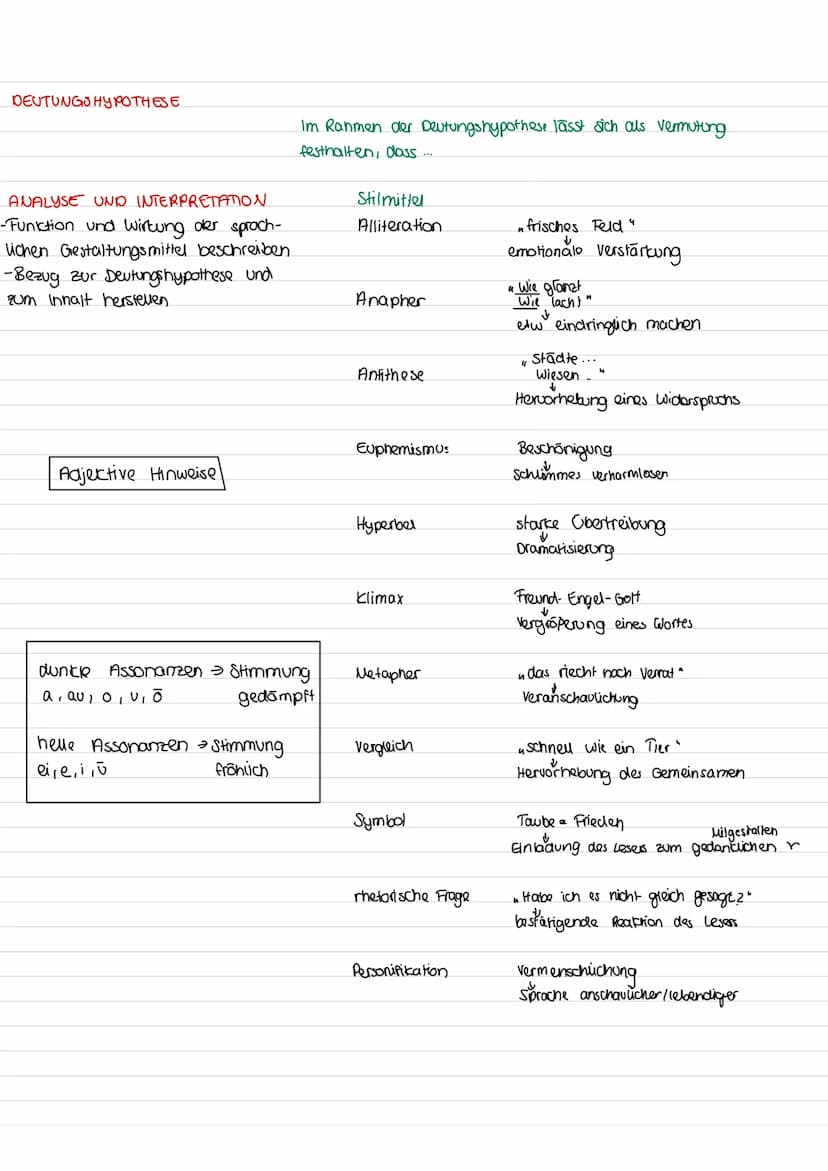 DEUTUNGSHYPOTHESE
Im Rahmen der Deutungshypothese lässt sich als Vermutung
festhalten, dass ...
ANALYSE UND INTERPRETATION
-Funktion und Wirkung der sprach-
lichen Gestaltungsmittel beschreiben
-Bezug zur Deutungshypothese und
zum Inhalt herstellen
Adjective Hinweise
dunkle Assonanzen → Stimmung
a, au, o, u, ö gedämpft
helle Assonanzen → Stimmung
ei, e, i, ü fröhlich
Stilmittel
Alliteration „frisches Feld"
↓
emotionale Verstärkung
Anapher „Wie glänzt
Wie lacht"
↓
etw eindringlich machen
Antithese „Städte...
Wiesen..."
↓
Hervorhebung eines Widerspruchs
Euphemismus Beschönigung
↓
Schlimmes verharmlosen
Hyperbel starke Übertreibung
↓
Dramatisierung
Klimax Freund-Engel-Gott
↓
Vergrößerung eines Wortes
Metapher „das riecht nach Verrat"
↓
Veranschaulichung
Vergleich „schnell wie ein Tier"
↓
Hervorhebung des Gemeinsamen
Symbol Taube = Frieden
↓
Einladung des Lesers zum gedanklichen Mitgestalten
rhetorische Frage „Habe ich es nicht gleich gesagt?"
↓
bestätigende Reaktion des Lesers
Personifikation Vermenschlichung
↓
Sprache anschaulicher/lebendiger